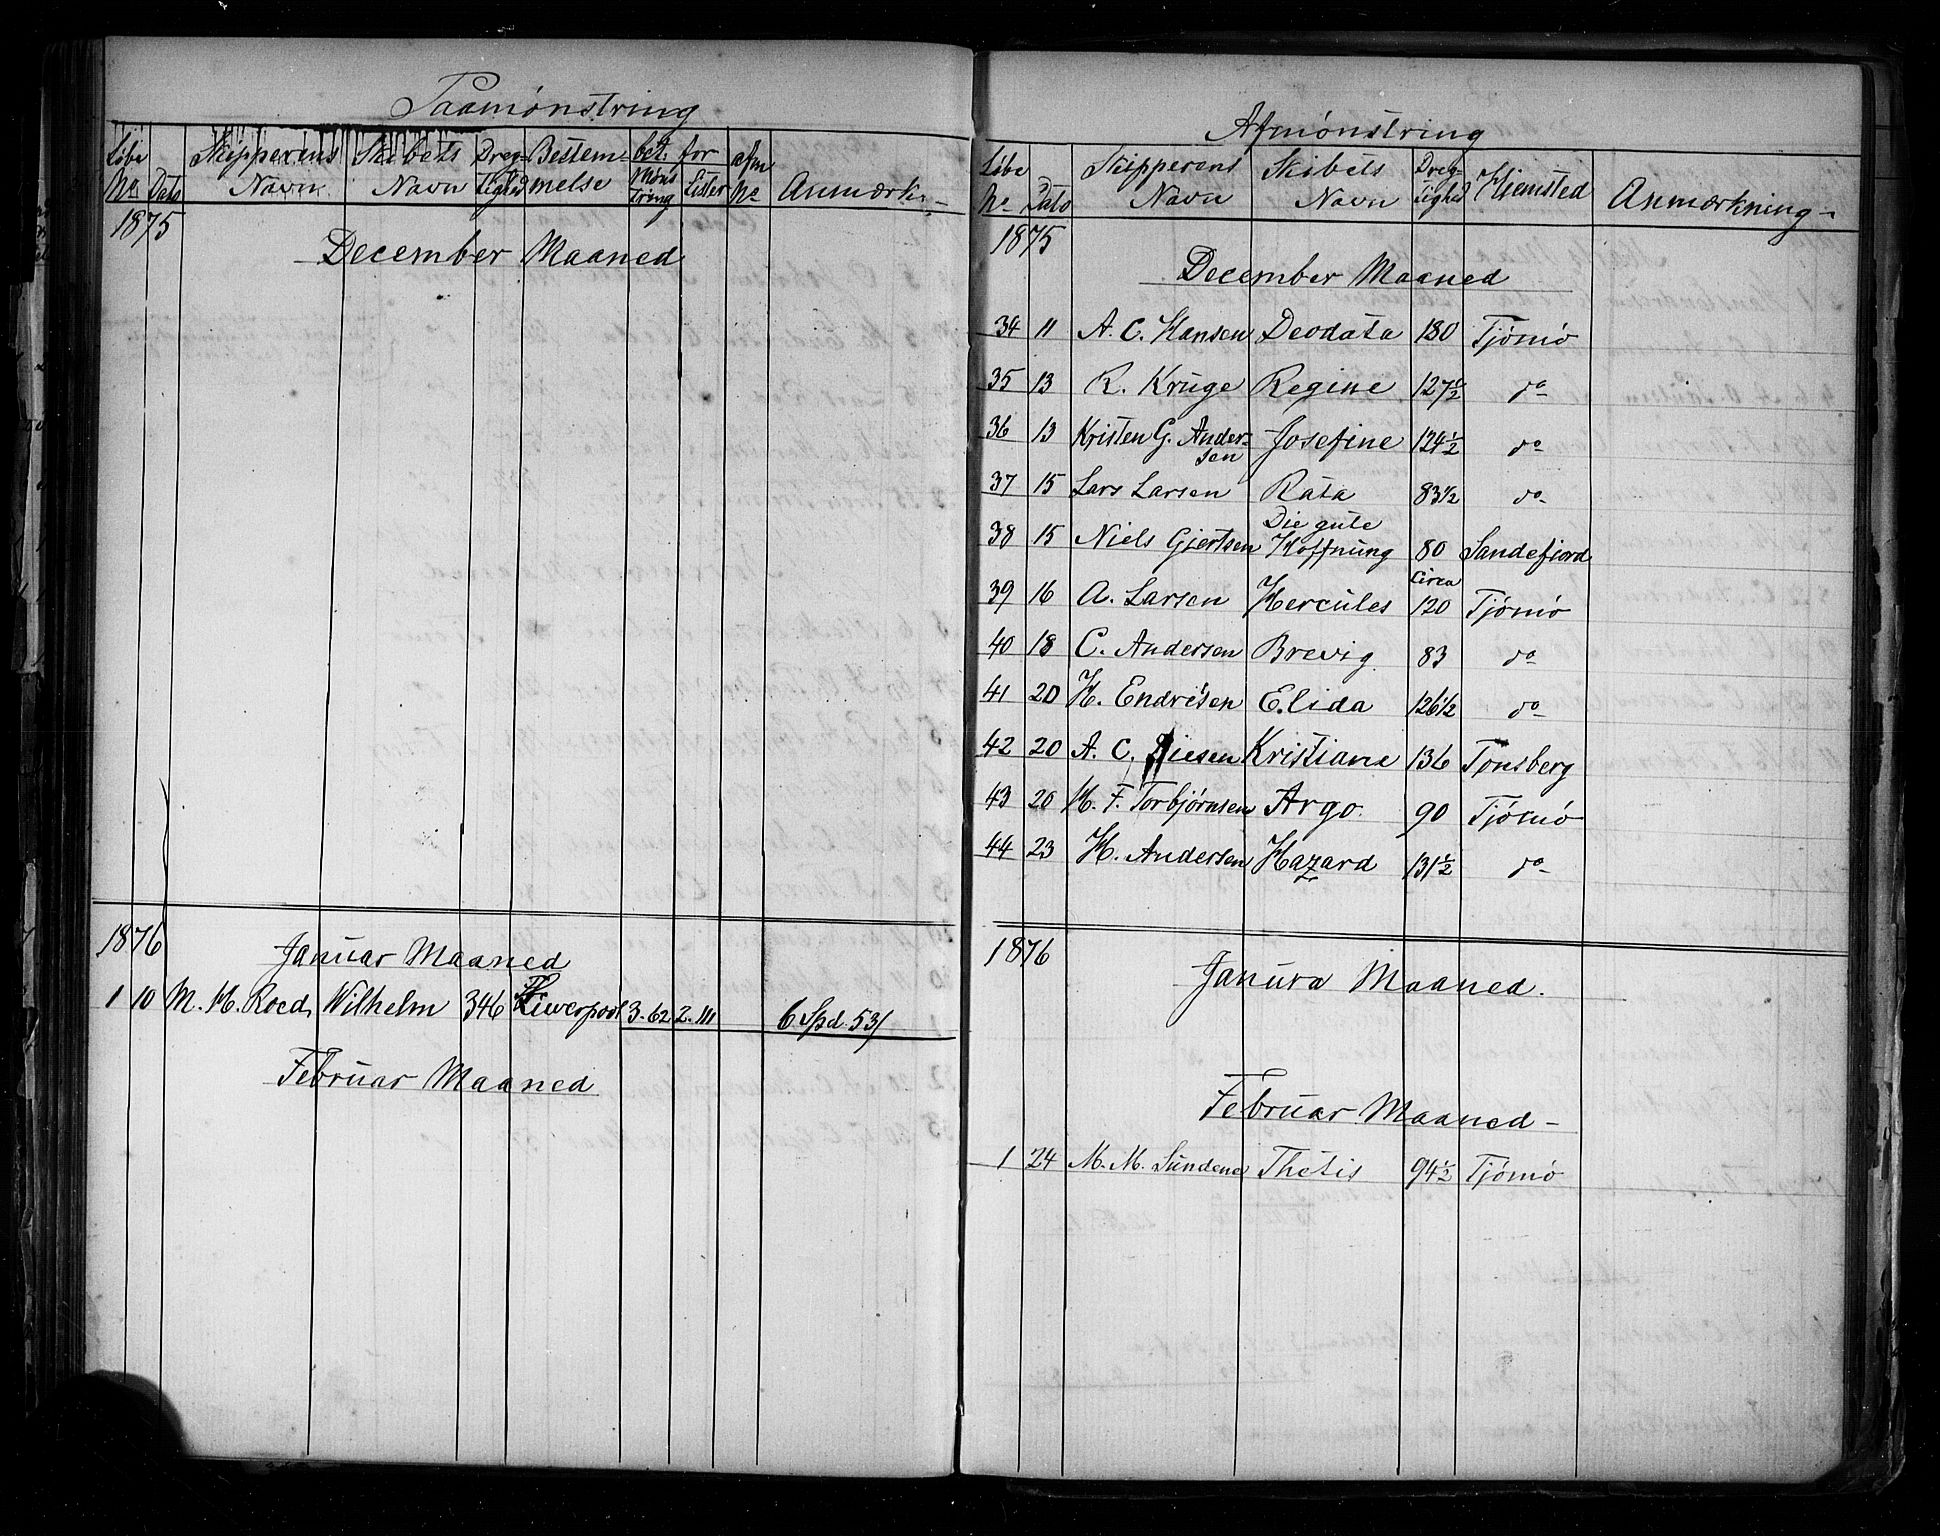 Paamønstring
Løbe No Dato Skipperens Navn Skibets Navn Dreg-tighed Bestem-melse bet. for Møns tring Lister afm No Anmærkn.
1875
December Maaned
1876
Januar Maaned
1 10 M. H. Roed Wilhelm 346 Liwerpool 3.62 2.111 6 Spd. 53/
Februar Maaned
Afmønstring
Løbe No Dato Skipperens Navn Skibets Navn Dreg-tighed Hjemsted Anmærkning
1875
December Maaned
34 11 A. C. Hansen Deodata 180 Tjømø
35 13 R. Kruge Regine 127½ do
36 13 Kristen G. Ander-
sen Josefine 124½ do
37 15 Lars Larsen Rata 83½ do
38 15 Niels Gjertsen Die gute
Hoffnung 80 Sandefjord
39 16 A. Larsen Hercules circa
120 Tjømø
40 18 C. Andersen Brevig 83 do
41 20 H. Endrésen Elida 126½ do
42 20 A. C. Riesen Kristiane 136 Tønsberg
43 20 H. F. Torbjørnsen Argo. 90 Tjømø
44 23 H. Andersen Hazard 131½ do
1876
Janura Maaned.
Februar Maaned
1 24 M. M. Sundene Thetis 94½ Tjømø